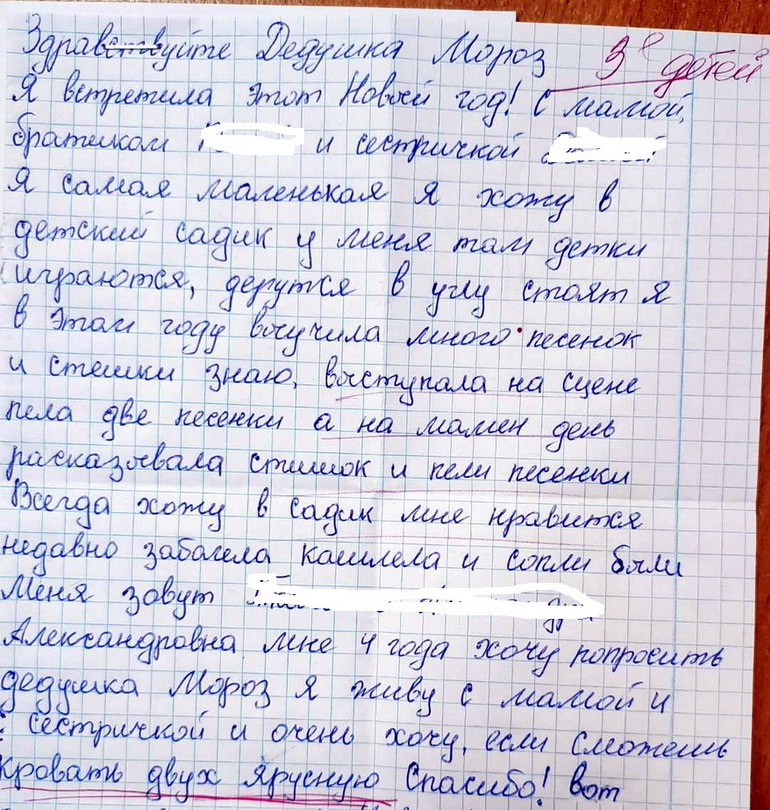 Здравствуйте Дедушка Мороз 3е детей
Я встретила этот Новый год! С мамой,
братиком и сестричкой
Я самая маленькая я хожу в
детский садик у меня там детки
играются, дерутся в углу стоят я
в этом году выучила много песенок
и стешки знаю, выступала на сцене
пела две песенки а на мамен день
расказывала стишок и пели песенки
Всегда хожу в садик мне нравится
недавно забалела кашлела и сопли были
Меня зовут
Александровна мне 4 года хочу попросить
дедушка Мороз я живу с мамой и
сестричкой и очень хочу, если сможешь
кровать двух ярусную Спасибо! вот